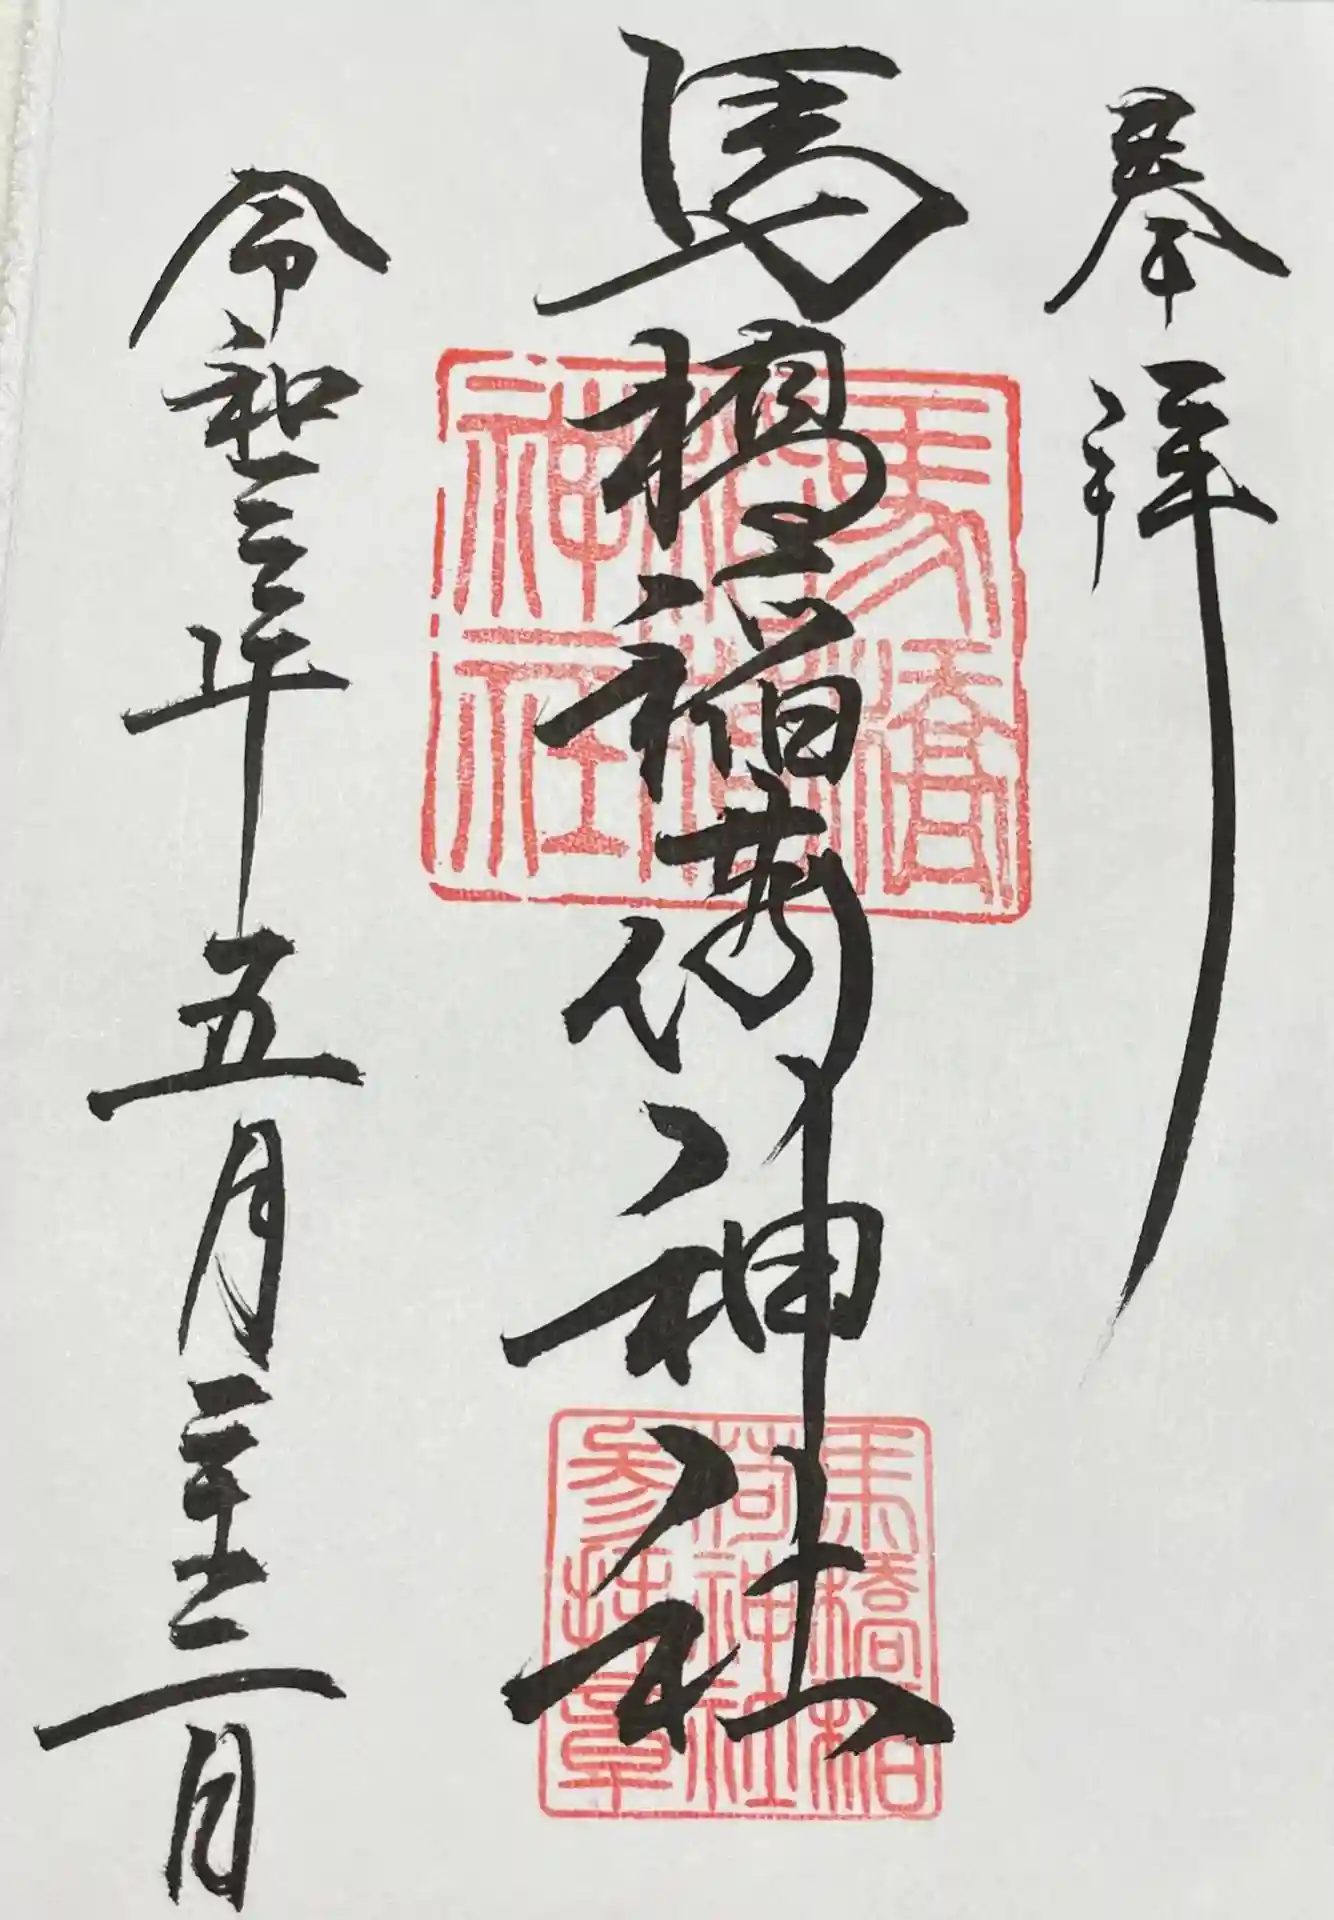 奉拝
馬橋稲荷神社
令和三年五月二十三日
馬橋
稲荷
神社
馬橋稲
荷神社
参拝章